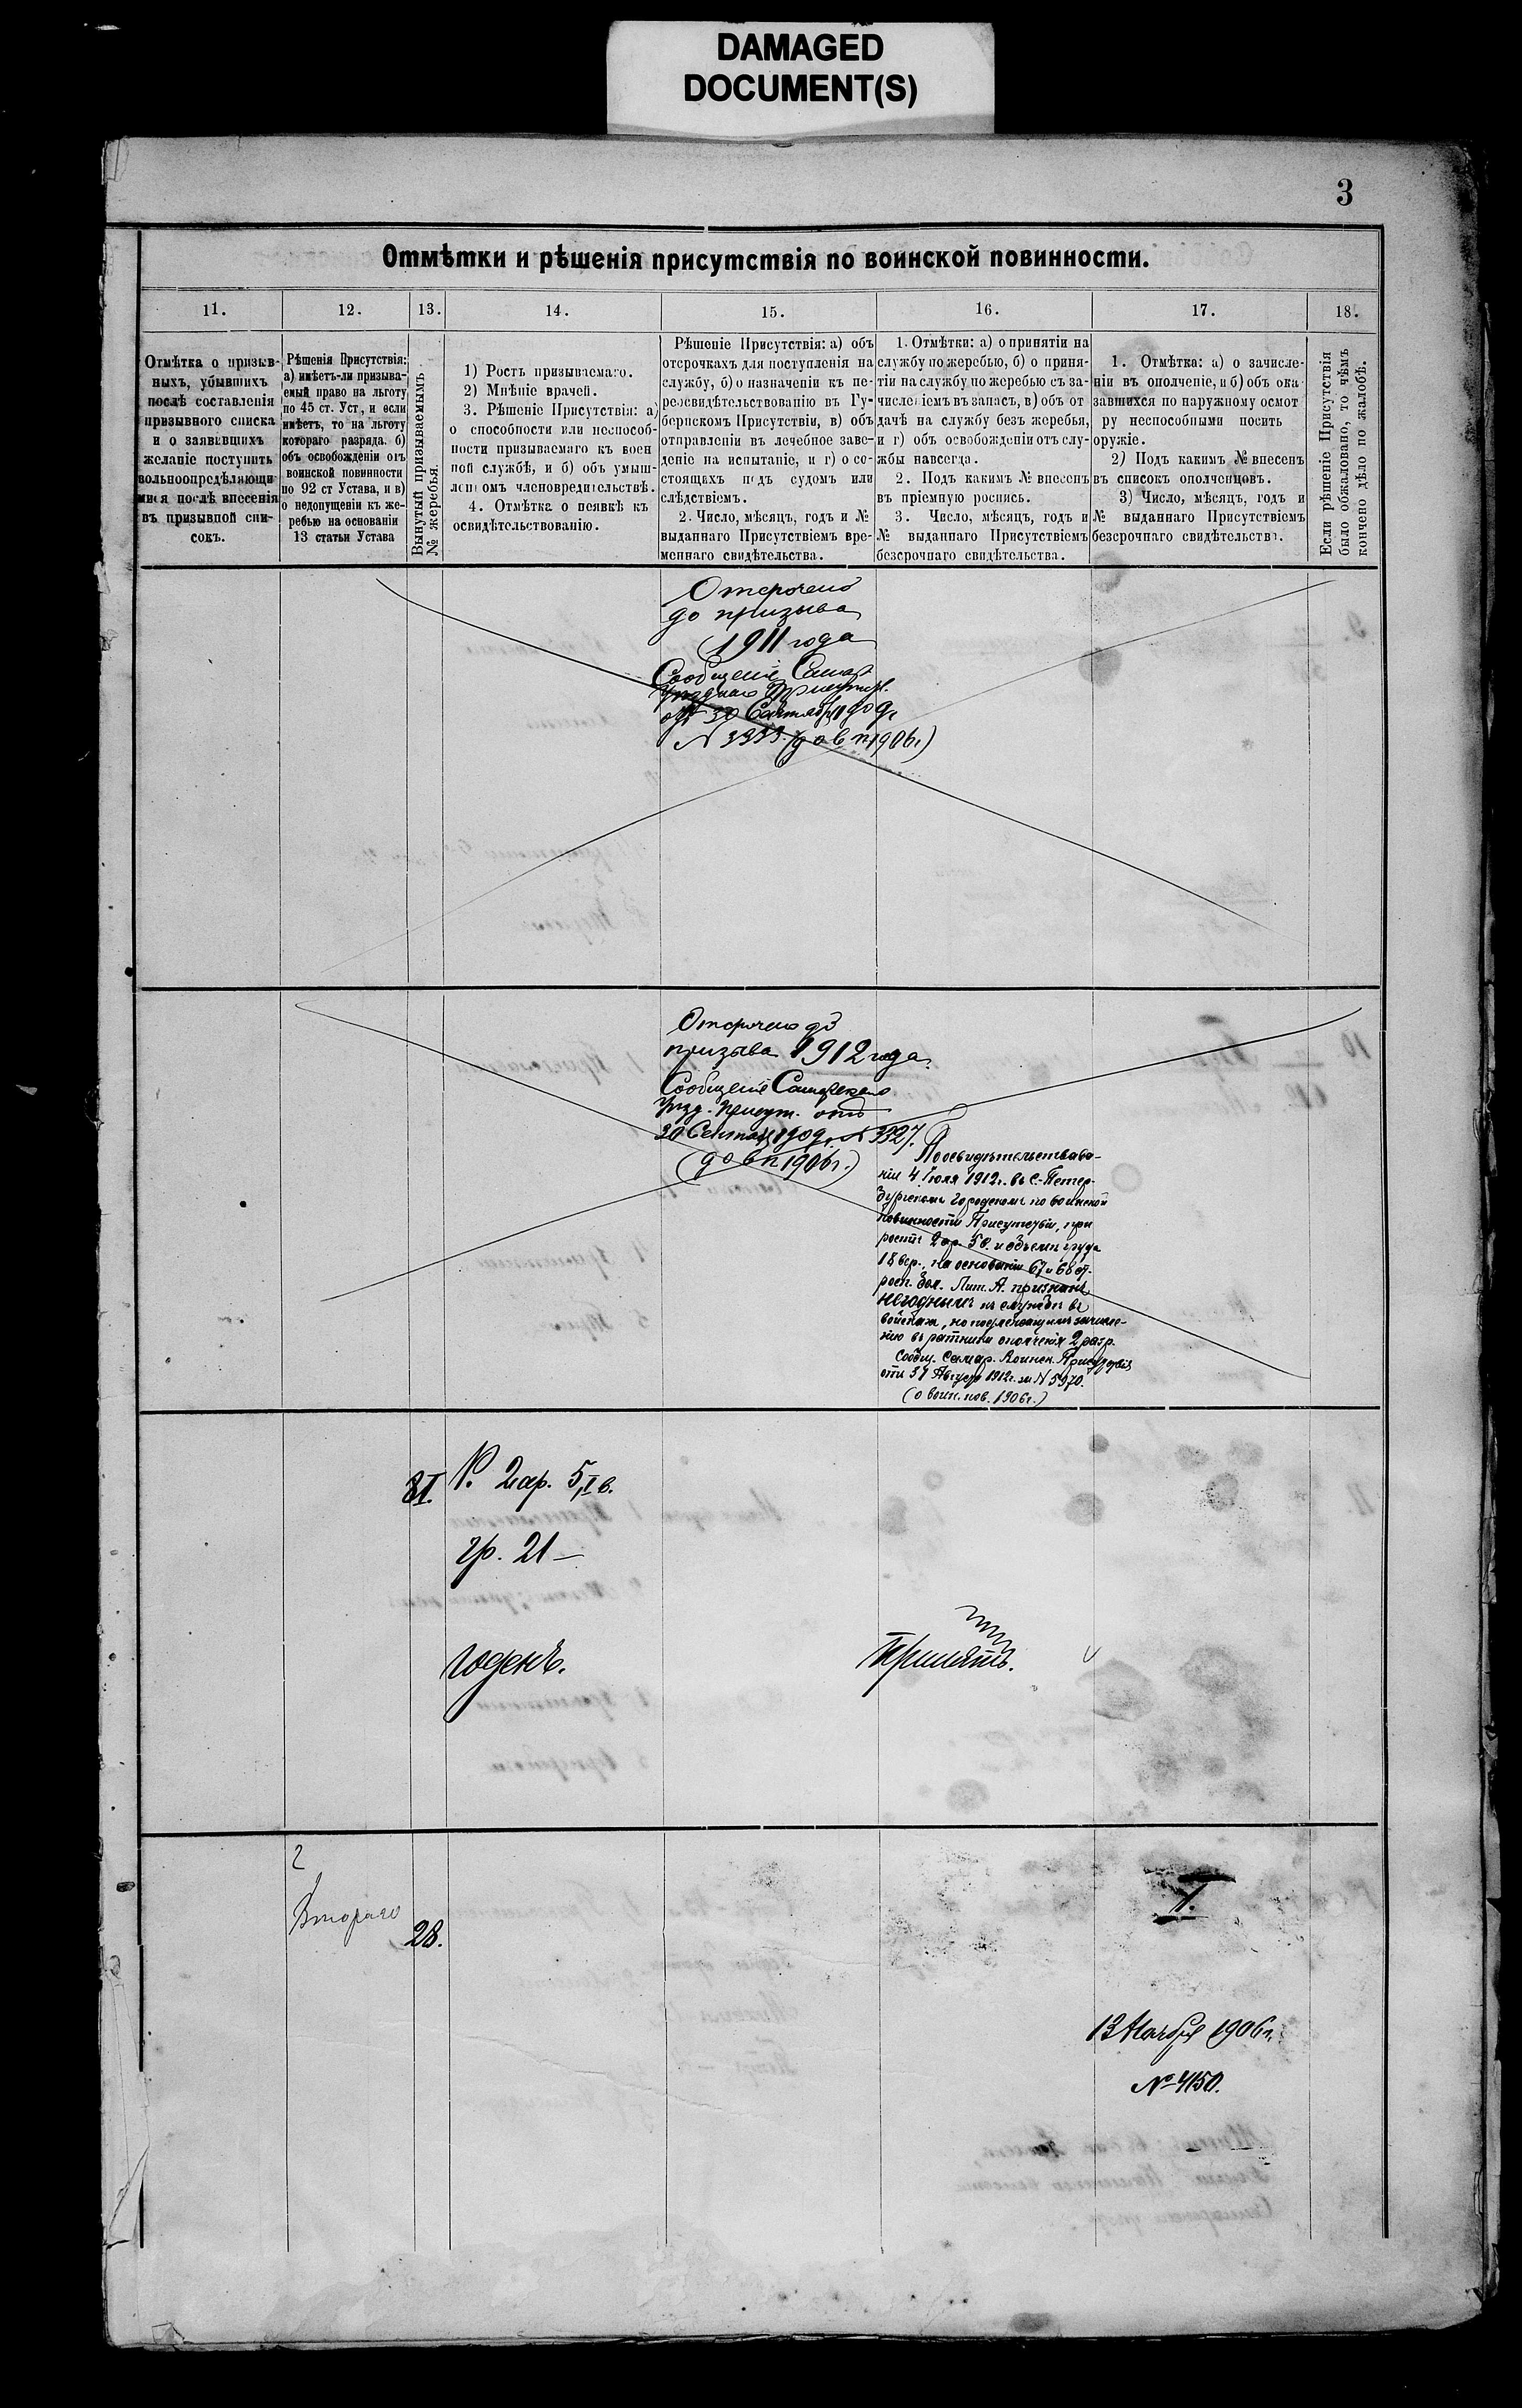 DAMAGED
DOCUMENT(S)
3
Отмѣтки и рѣшенія присутствія по воинской повинности.
11. 12. 13. 14. 15. 16. 17. 18.
Отмѣтка о призыв-
ныхъ, убывшихъ
послѣ составленія
призывного списка
и о заявившихъ
желаніе поступить
вольноопредѣляющи
мися послѣ внесенія
въ призывной спи-
сокъ.
Рѣшенія Присутствія:
а) имѣетъ-ли призыва-
емый право на льготу
по 45 ст. Уст., и если
имѣетъ, то на льготу
котораго разряда. б)
объ освобожденіи отъ
воинской повинности
по 92 ст Устава, и в)
о недопущеніи къ же-
ребью на основаніи
13 статьи Устава
Вынутый призываемымъ
№ жеребья.
1) Ростъ призываемаго.
2) Мнѣніе врачей.
3. Рѣшеніе Присутствія: а)
о способности или неспособ-
ности призываемаго къ воен
ной службѣ, и б) объ умыш-
ленномъ членовредительствѣ.
4. Отмѣтка о неявкѣ къ
освидѣтельствованію.
Рѣшеніе Присутствія: а) объ
отсрочкахъ для поступленія на
службу, б) о назначеніи къ пе-
реосвидѣтельствованію въ Гу-
бернскомъ Присутствіи, в) объ
отправленіи въ лечебное заве-
деніе на испытаніе, и г) о со-
стоящахъ подъ судомъ или
слѣдствіемъ.
2. Число, мѣсяцъ, годъ и №
выданнаго Присутствіемъ вре-
меннаго свидѣтельства.
1. Отмѣтки: а) о принятіи на
службу по жеребью, б) о приня-
тіи на службу по жеребью съ за-
численіемъ въ запасъ, в) объ от
дачѣ на службу безъ жеребья,
и г) объ освобожденіи отъ слу-
жбы навсегда.
2. Подъ какимъ № внесенъ
въ пріемную роспись.
3. Число, мѣсяцъ, годъ и
№ выданнаго Присутствіемъ
безсрочнаго свидѣтельства.
1. Отмѣтка: а) о зачисле-
ніи въ ополченіе, и б) объ ока
завшихся по наружному осмот
ру неспособными носить
оружіе.
2) Подъ какимъ № внесенъ
въ списокъ ополченцовъ.
3) Число, мѣсяцъ, годъ и
№ выданнаго Присутствіемъ
безсрочнаго свидѣтельства.
Если рѣшеніе Присутствія
было обжаловано, то чѣмъ
кончено дѣло по жалобѣ.
Отсрочено
до призыва
1911 года
Сообщеніе Самар
Уѣзднаго Присутств.
отъ 30 Сентября 909г
N 3333. (до в п 1906г.)
Отсрочено до
призыва 1912 года.
Сообщеніе Самарскаго
Уѣзд. Присут. отъ
30 Сентяб 1909г. N 3327.
(до в п 1906г.)
По освидѣтельствова-
ніи 4 Іюля 1912г. въ С.-Петер-
бургскомъ Городскомъ по воинской
повинности Присутствіи, при
ростѣ 2 ар. 5 в. и объемѣ груди
18 вер., на основаніи 67 и 68 ст.
росп. бол. Лит. А. признанъ
негоднымъ къ службѣ въ
войскахъ, но подлежащимъ зачисле-
нію въ ратники ополченія 2 разр.
Сообщ. Самар. Воинск. Присутствія
отъ 31 Августа 1912г. за N 5970.
(о воин. пов. 1906г.)
81.
Р. 2 ар. 5,1 в.
гр. 21 —
годенъ.
Принятъ.
2
Втораго
28.
1.
13 Ноября 1906г.
№ 4150.